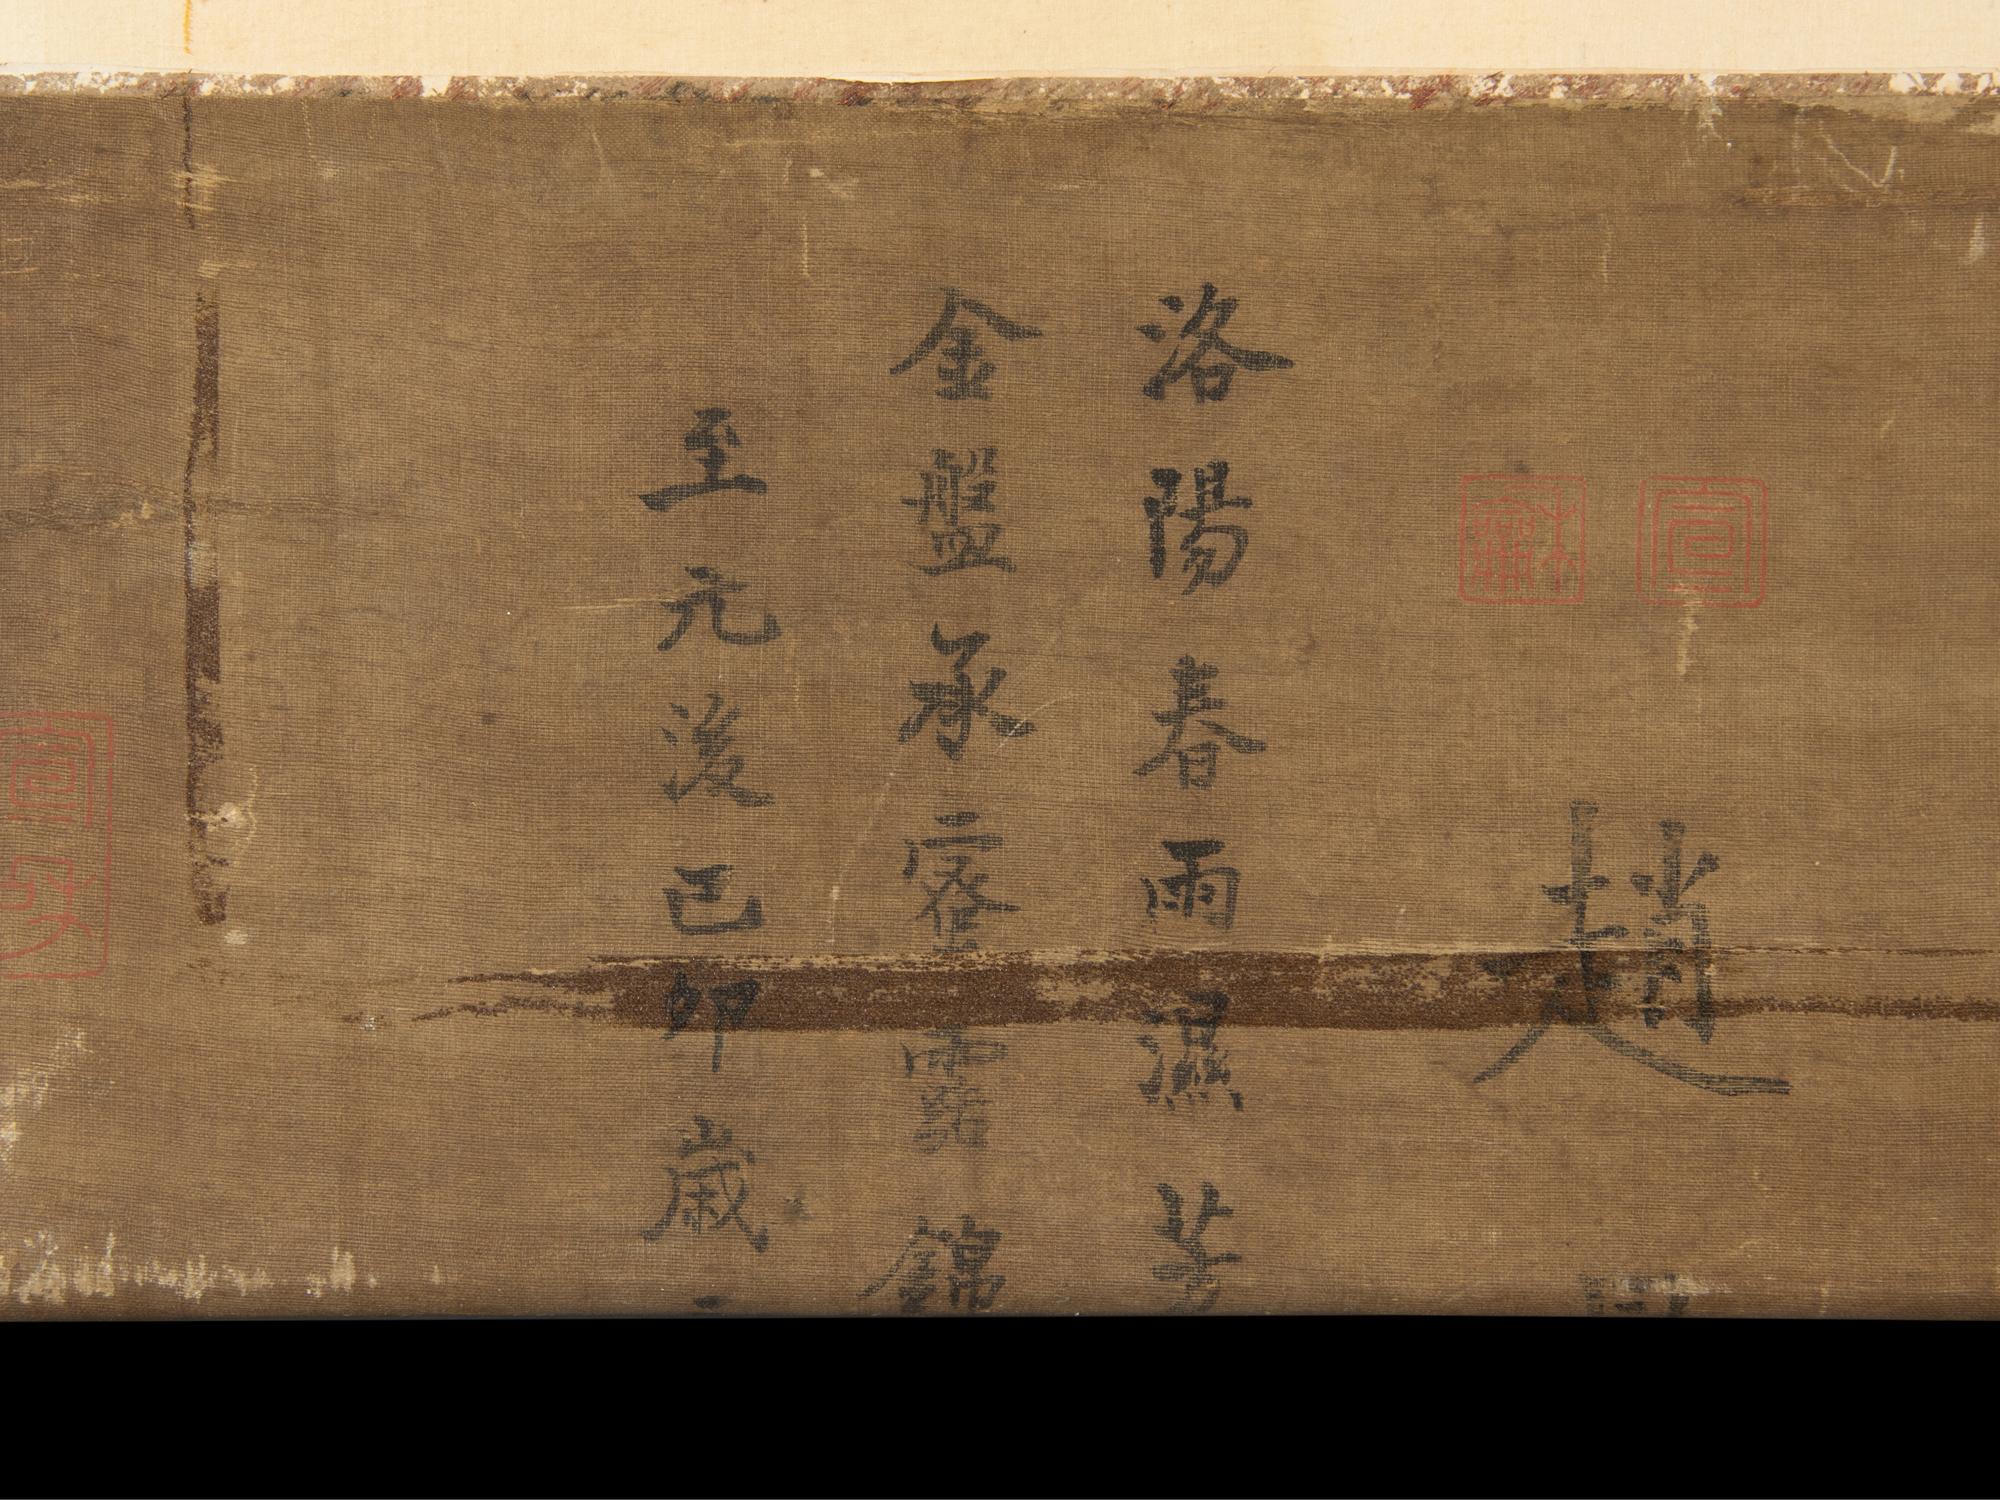 趙
洛陽春雨濕芳
金盤承密露錦
至元後己卯歲
宣
龢